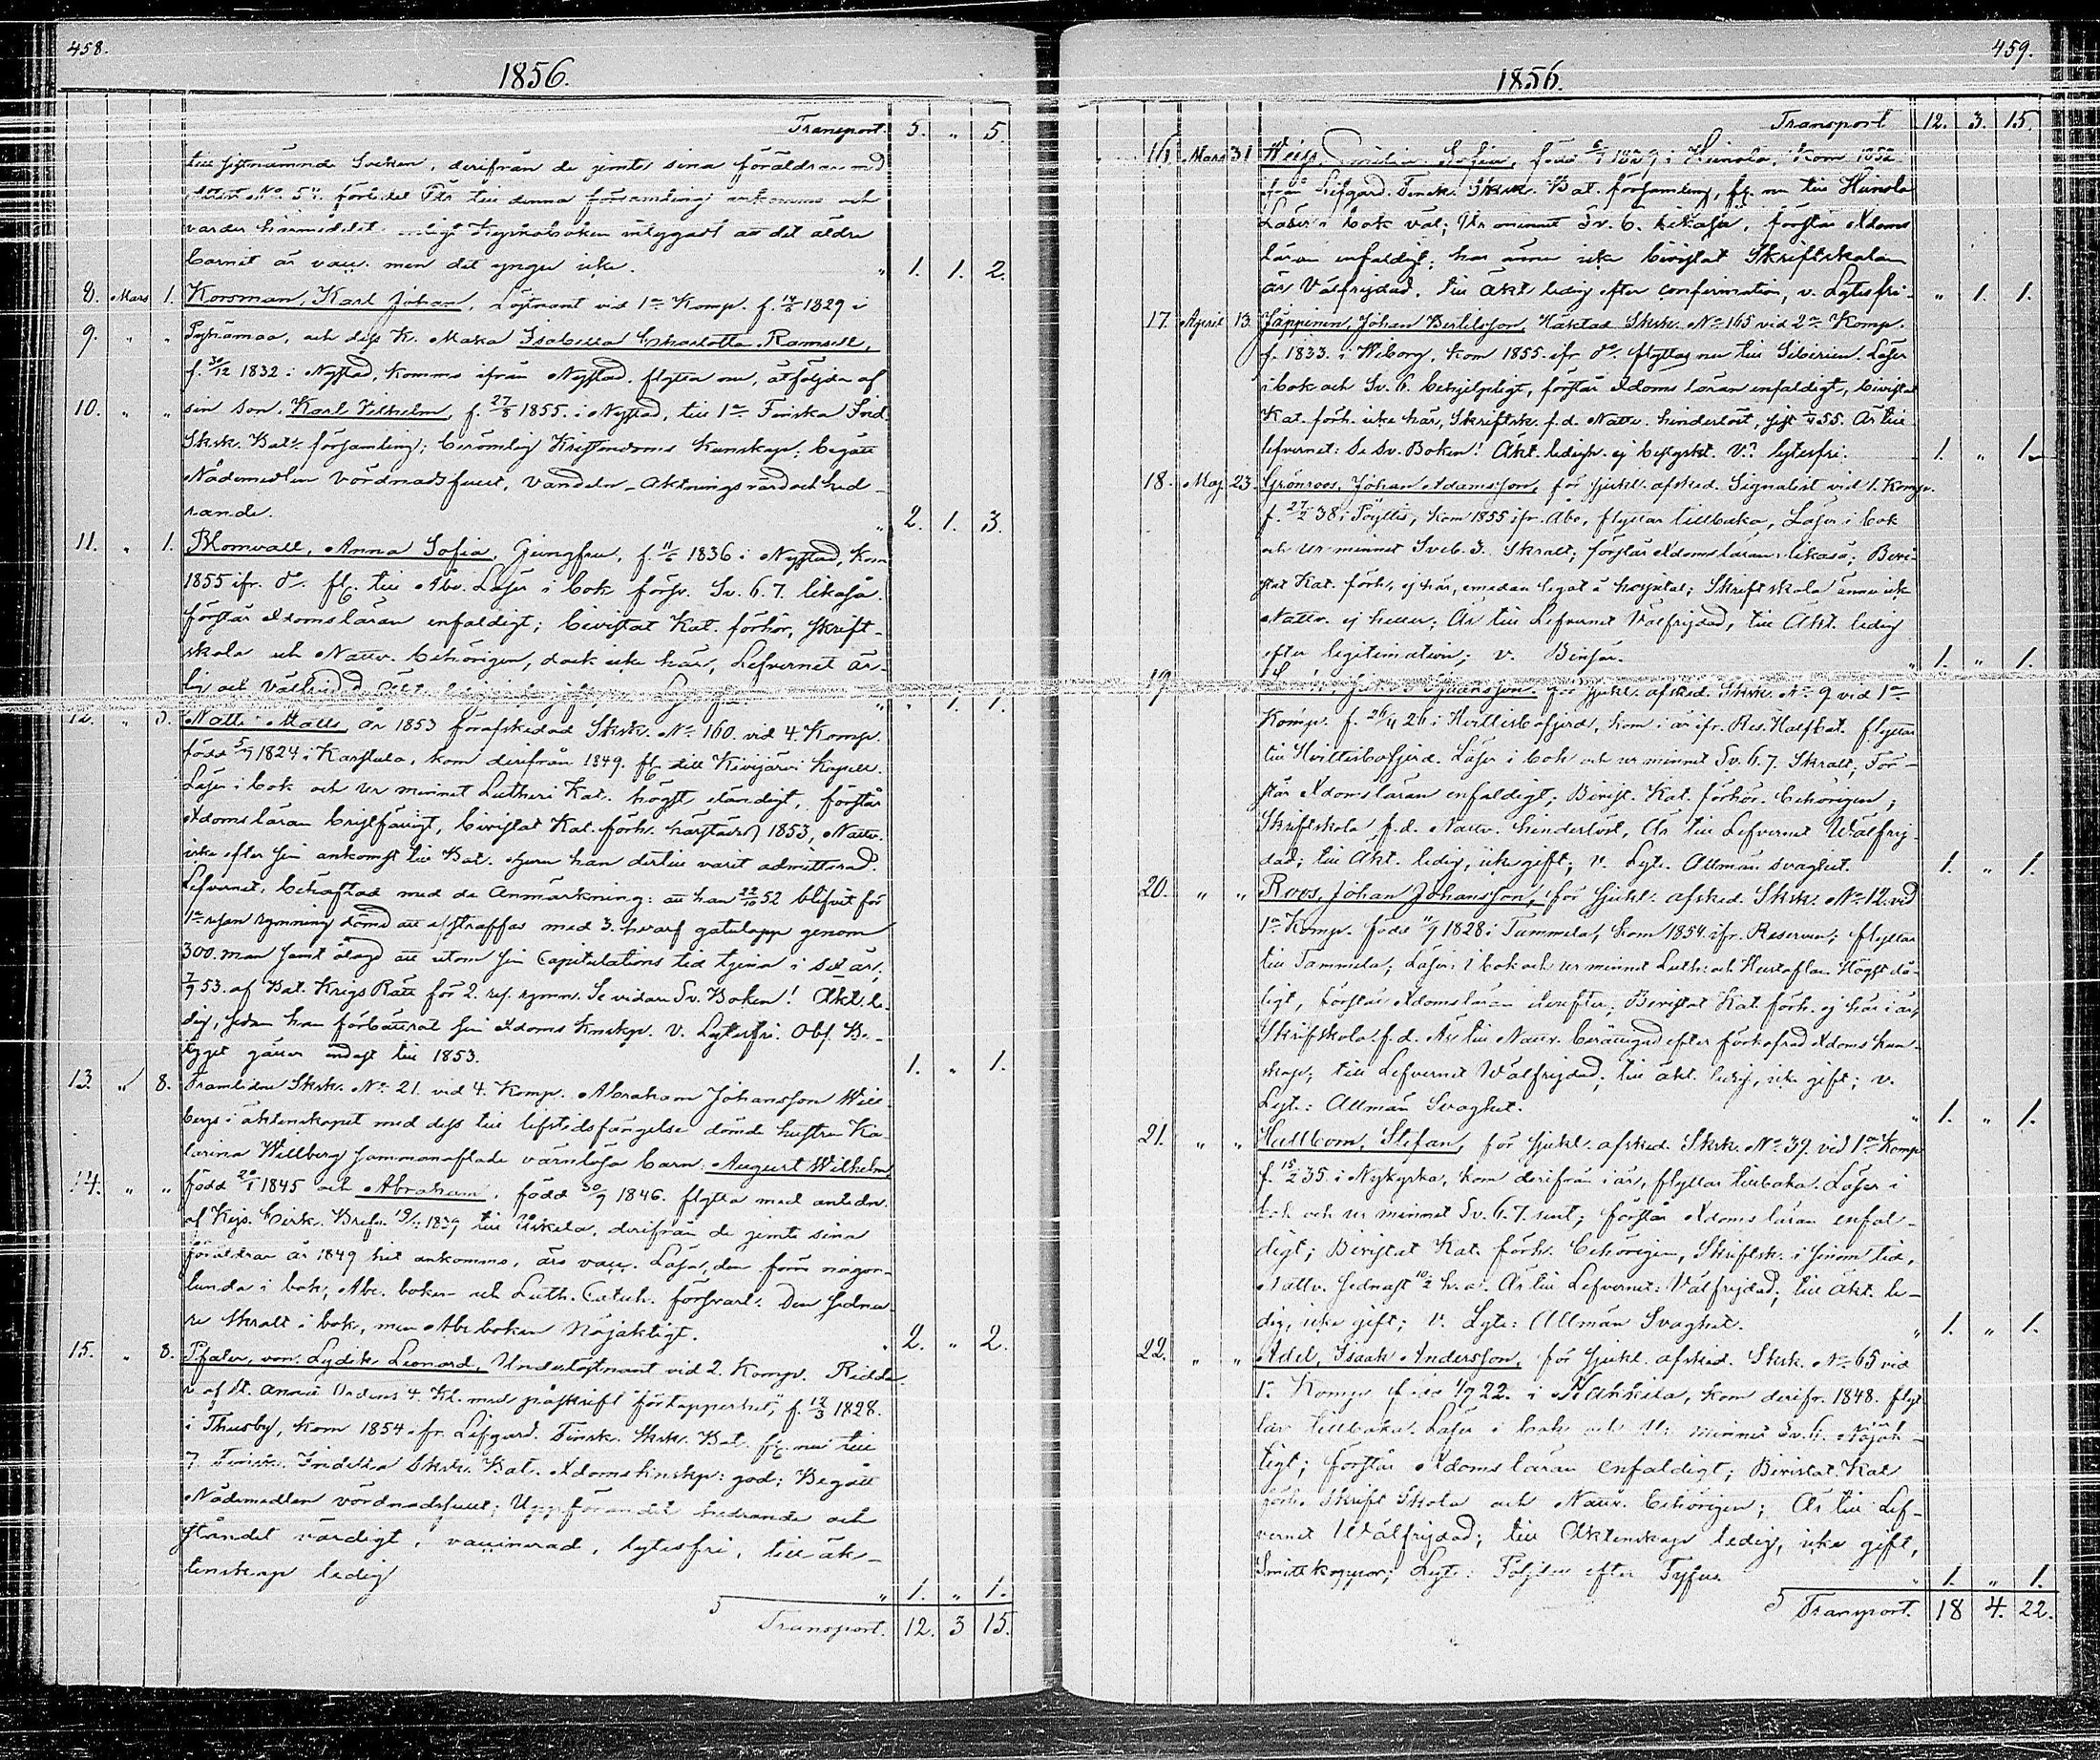 458.
1856.
Transport. 5. " 5.
till sistnämnde Socken, derifrån de jemte sina föräldrar med
attest No 5 förledet År till denna församling ankommo och
varder härmedelst enligt Kyrkoboken intygadt att det äldre
barnet är vacc. men det yngre icke. " 1. 1. 2.
8. Mars 1. Korsman, Karl Johan, Löjtnant vid 1a Komp. f. 1829 i
9. " " Pyhämaa, och dess K. Maka Isabella Charlotta Ramsell,
f. 30/12 1832 i Nystad, komma ifrån Nystad. flytta nu, åtföljda af
10. " " sin son, Karl Vilhelm, f. 27/8 1855 i Nystad, till 1a Finska Ind.
Sksk. Bats församling; berömlig Kristendoms Kunskap, begått
Nådemedlen vördnadsfullt, vandeln - Aktningsvärd och hed-
rande. " 2. 1. 3.
11. " 1. Blomvall, Anna Sofia, Jungfru, f. 1836 i Nystad, kom
1855 ifr. do. fl. till Åbo. Läser i bok försv. Sv. 6. 7. likaså.
förstår Kdomsläran enfaldigt; bevistat Kat. förhör, skrift-
skola och Nattv. behörigen, dock icke här, Lefvernet är-
lig och Välfrejdad " 1. 1.
12. " 3. Matts, år 1853 förafskedad Sksk. No 160. vid 4. Komp.
född 5/9 1824 i Karstula, kom derifrån 1849. fl. till Kivijärvi Kapell.
Läser i bok och ur minnet Lutheri Kat. högst eländigt, förstår
Kdomsläran bristfälligt, bevistat Kat. förh. härstädes 1853, Nattv.
icke efter sin ankomst till Bat. churu han dertill varit admitterad.
Lefvernet, behäftad med de Anmärkning: att han 22/10 52 blifvit för
1a resan rymning dömd att afstraffas med 3. hvarf gatulopp genom
300. man samt ålagd att utom sin Capitulations tid tjena i sex år,
7/9 53. af Bat. Krigs Rätt för 2. res. rymn. Se vidare Sv. Boken! Äkt. le-
dig, sedan han förbättrat sin Kdoms knskp. V. Lytesfri. Obs. Be-
tyget gäller endast till 1853. 1. " 1.
13. " 8. Framlidne Skskn. No 21. vid 4. Komp. Abraham Johansson Will-
bergs i äktenskapet med dess till lifstidsfängelse dömda hustru Ka-
tarina Willberg sammanaflade värnlösa barn, August Wilhelm,
14. " " född 20/1 1845 och Abraham, född 30/9 1846. flytta med anledn.
af Kejs. Cirk. Brefv. 1839 till Uskela, derifrån de jemte sina
föräldrar år 1849 hit ankommo, äro vacc. Läser, den förre någor-
lunda i bok, Abc. boken och Luth. Catech. försvarl. Den sedna-
re skralt i bok, men Abc boken Nöjaktigt. " 2. " 2.
15. " 8. Pfaler, von. Lydik Leonard, Underlöjtnant vid 2. Komp. Ridda-
re af St. Annæ Ordens 4. Kl. med påskrift "för tapperhet", f. 12/3 1828.
i Thusby, kom 1854 ifr. Lifgard. Finsk. Skrk. Bat. fl. nu till
7. Finska Indelta Skrsk. Bat. Kdoms kunskp: god; Begått
Nådemedlen vördnadsfullt; Uppförandet hedrande och
ståndet värdigt, vaccinerad, lytesfri, till äk-
tenskap ledig " 1. " 1.
Transport. 12. 3 15.
459.
1856.
Transport 12. 3. 15.
16. Mars 31 Sofia, född 1829 i Heinola, kom 1852
från Lifgard. Finsk. Skrk. Bat. församling, fl. nu till Heinola
Läser i bok väl; Ur minnet Sv. 6. likaså, förstår Kdoms
läran enfaldigt; har ännu icke bevistat Skriftskolan
är Välfrejdad, till Äkt. ledig efter confirmation, v. Lytesfri. " 1. 1.
17. April 13. Jäppinen, Johan Bertilsson, Häktad Skrk. No 165 vid 2a Komp.
f. 1833. i Wiborg, kom 1855 ifr. do. flyttas nu till Siberien. Läser
i bok och Sv. 6. behjelpligt, förstår Kdoms läran enfaldigt, bevistat
Kat. förh. icke här, Skriftsk. f. d. Nattv. hinderlöst, sist 55. Är till
lefvernet: Se Sv. Boken! Äkt. ledigh. ej bestyrkt. V.? lytesfri. 1. " 1.
18. Maj 23. Grönroos, Johan Adamsson, för sjukl. afsked. Signalist vid 1. Komp.
f. 27/2 38 i Pöyttis, kom 1855 ifr. Åbo, flyttar tillbaka, Läser i bok
och ur minnet Sveb. 3. Skralt; förstår Kdomsläran likaså; Bevi-
stat Kat. förh., ej här, emedan legat å hospital; Skriftskola ännu icke
Nattv. ej heller; Är till Lefvernet Välfrejdad, till Äkt. ledig
efter legitimation; v. Bensår. " 1. " 1.
19 för sjukl. afsked. Skrk. No 9 vid 1a
Komp. f. 26/4 26 i Hvittisbofjerd, kom i år ifr. Res. Halfbat. flyttar
till Hvittisbofjerd. Läser i bok och ur minnet Sv. 6. 7. Skralt; För-
står Kdomsläran enfaldigt; Bevist. Kat. förhör behörigen;
Skriftskola f. d. Nattv. hinderlöst, Är till Lefvernet Välfrej-
dad; till Äkt. ledig, icke gift; v. Lyte. Allmän svaghet. 1. " 1.
20. " " Roos, Johan Johansson, för sjukl. afsked. Skrk. No 12 vid
1a Komp. född 11/9 1828 i Tammela, kom 1854 ifr. Reserven; flyttar
till Tammela; Läser i bok och ur minnet Luth. och Hustaflan Högst då-
ligt, förstår Kdomsläran derefter; Bevistat Kat. förh. ej här i år;
Skriftskola f. d. Är till Nattv. berättigad efter förkofrad Kdoms kun-
skap; till Lefvernet Wälfrejdad; till äkt. ledig, icke gift; v.
Lyte: Allmän Svaghet. " 1. " 1.
21. " " Hellbom, Stefan, för sjukl. afsked. Skrk. No 39. vid 1a Komp
f. 15/2 35. i Nykyrka, kom derifrån i år, flyttar tillbaka. Läser i
bok och ur minnet Sv. 6. 7. rent; förstår Kdoms läran enfal-
digt; Bevistat Kat. förh. behörigen, Skriftsk. i sinom tid,
Nattv. sednast h. a. Är till Lefvernet: Välfrejdad; till Äkt. le-
dig, icke gift; v. Lyte: Allmän Svaghet. " 1. " 1.
22. " " Adel, Isaak Andersson, för sjukl. afsked. Skrk. No 65 vid
1. Komp. 22. i Nakkila, kom derifr. 1848. flyt-
tar tillbaka. Läser i bok och ur minnet Sv. 6. Nöjak-
tigt; förstår Kdoms läran enfaldigt; Bevistat Kat
förh. Skrift Skola och Nattv. behörigen; Är till Lef-
vernet Wälfrejdad; till Äktenskap ledig, icke gift,
Smittkoppor; Lyte: Följden efter Tyfus. 1. " 1.
Transport. 18 4. 22.